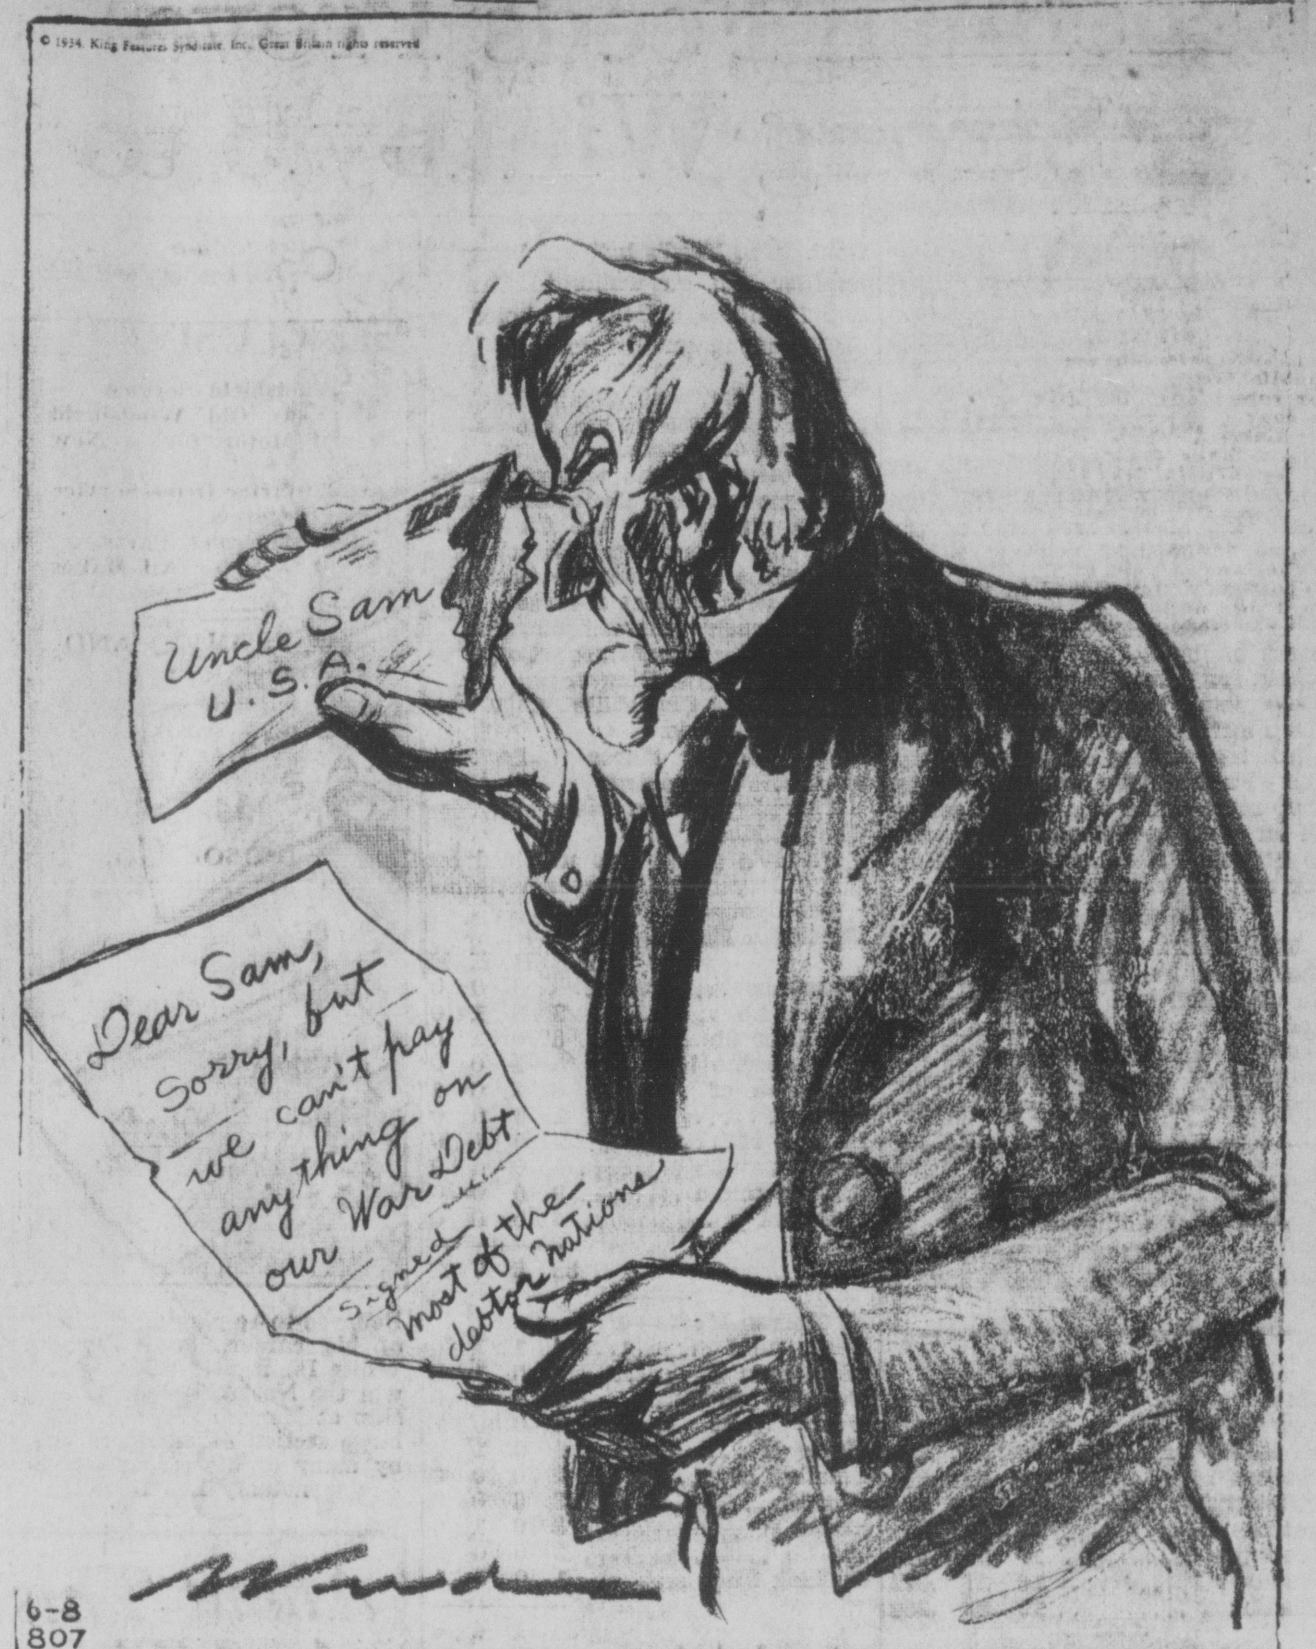 © 1934, King Features Syndicate, Inc., Great Britain rights reserved
Uncle Sam
U.S.A.
Dear Sam,
Sorry, but
we can't pay
anything on
our War Debt
Signed
most of the
debtor nations
6-8
807